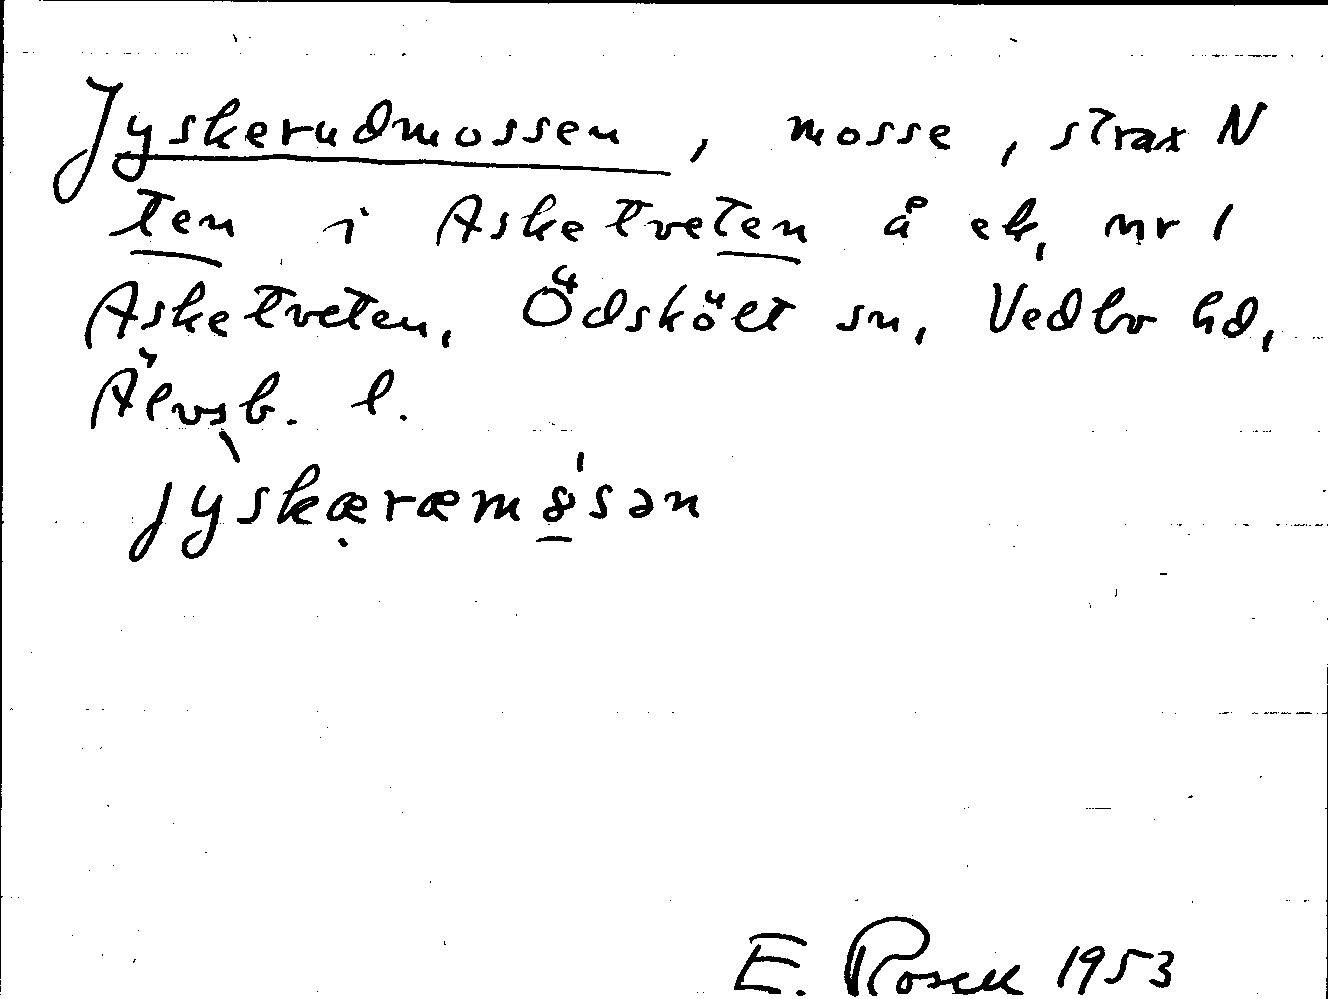 Jyskerudmossen, mosse, strax N
ten i Asketveten å ek, nr 1
Asketveten, Ödskölt sn, Vedbo hd,
Älvsb. l.
jỳskærœm8̱'sən
E. Rosell 1953